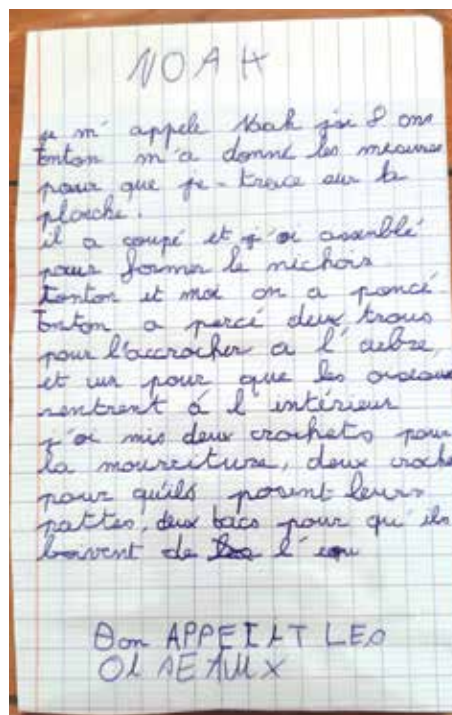 NOAH
je m'appele Noah j'ai 8 ans
tonton m'a donné les mesures
pour que je trace sur la
planche.
il a coupé et j'ai assemblé
pour former le nichoir
tonton et moi on a poncé
tonton a percé deux trous
pour l'accrocher a l'arbre,
et un pour que les oiseaux
rentrent à l'intérieur
j'ai mis deux crochets pour
la nourriture, deux croche
pour qu'ils posent leurs
pattes, deux bacs pour qu'ils
boivent de l'eau
Bon APPEIAT LES
OISEAUX